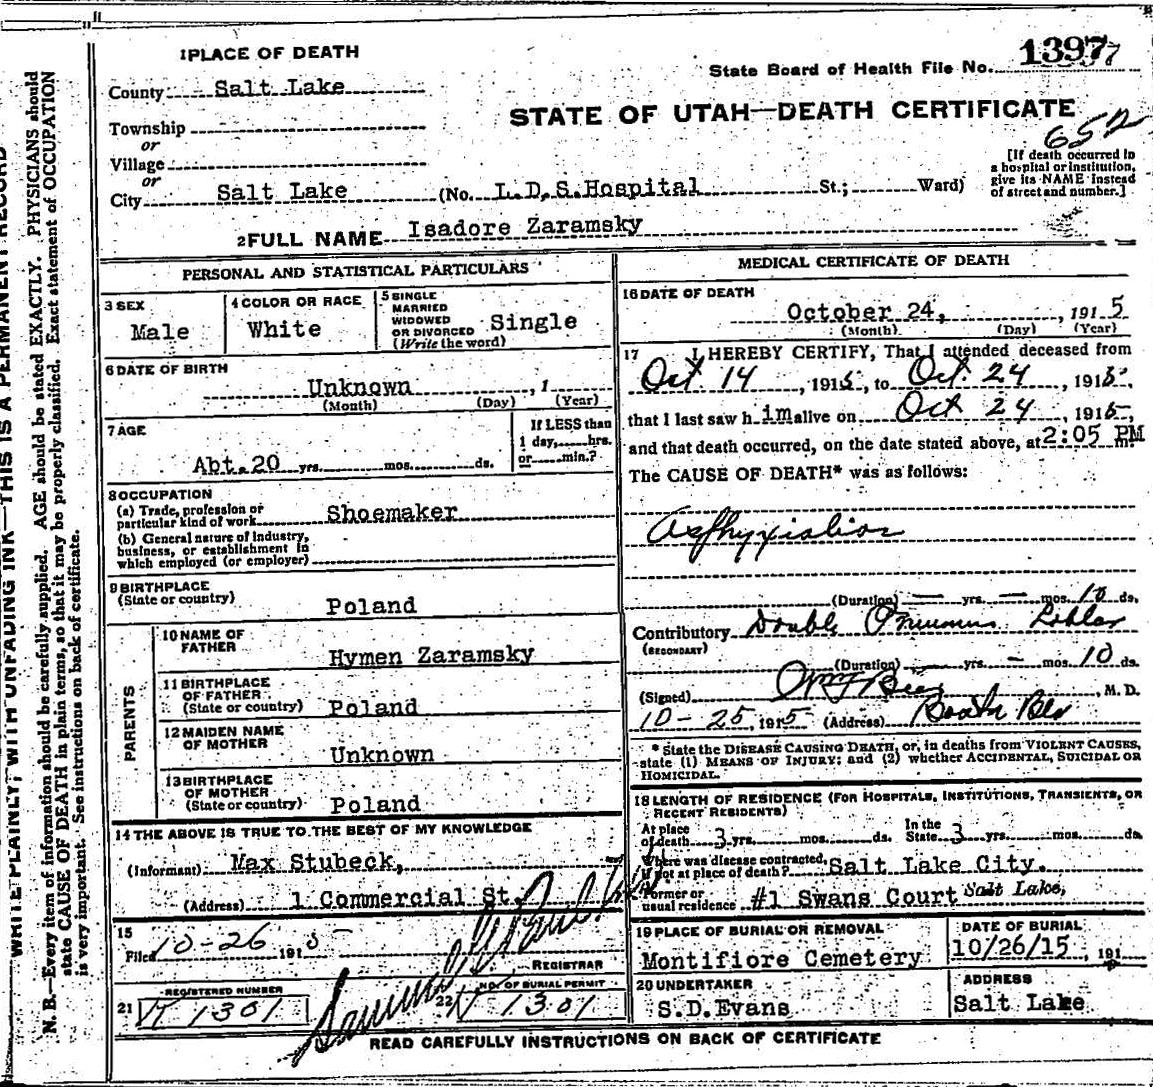 1 PLACE OF DEATH
State Board of Health File No. 1397
County Salt Lake
STATE OF UTAH—DEATH CERTIFICATE
652
Township
or
Village
or
City Salt Lake (No. L.D.S.Hospital St.; Ward)
[If death occurred in
a hospital or institution,
give its NAME instead
of street and number.]
2 FULL NAME Isadore Zaramsky
PERSONAL AND STATISTICAL PARTICULARS
3 SEX
Male
4 COLOR OR RACE
White
5 SINGLE
MARRIED
WIDOWED
OR DIVORCED
(Write the word)
Single
6 DATE OF BIRTH
Unknown , 1
(Month) (Day) (Year)
7 AGE
Abt.20 yrs. mos. ds.
If LESS than
1 day, hrs.
or min.?
8 OCCUPATION
(a) Trade, profession or
particular kind of work Shoemaker
(b) General nature of industry,
business, or establishment in
which employed (or employer)
9 BIRTHPLACE
(State or country) Poland
PARENTS
10 NAME OF
FATHER Hymen Zaramsky
11 BIRTHPLACE
OF FATHER
(State or country) Poland
12 MAIDEN NAME
OF MOTHER Unknown
13 BIRTHPLACE
OF MOTHER
(State or country) Poland
14 THE ABOVE IS TRUE TO THE BEST OF MY KNOWLEDGE
(Informant) Max Stubeck,
(Address) 1 Commercial St.
15
Filed 10-26 1915
REGISTRAR
21 REGISTERED NUMBER
1301
22 NO. OF BURIAL PERMIT
1301
MEDICAL CERTIFICATE OF DEATH
16 DATE OF DEATH
October 24, , 1915
(Month) (Day) (Year)
17 I HEREBY CERTIFY, That I attended deceased from
Oct. 14 , 1915, to Oct. 24 , 1915,
that I last saw h im alive on Oct 24 , 1915,
and that death occurred, on the date stated above, at 2:05 PM m.
The CAUSE OF DEATH* was as follows:
Asphyxiation
(Duration) — yrs. — mos. 10 ds.
Contributory Double
(SECONDARY)
(Duration) — yrs. — mos. 10 ds.
(Signed) , M. D.
10-25, 1915 (Address)
* State the DISEASE CAUSING DEATH, or, in deaths from VIOLENT CAUSES,
state (1) MEANS OF INJURY; and (2) whether ACCIDENTAL, SUICIDAL OR
HOMICIDAL.
18 LENGTH OF RESIDENCE (FOR HOSPITALS, INSTITUTIONS, TRANSIENTS, OR
RECENT RESIDENTS)
At place
of death 3 yrs. mos. ds. In the
State 3 yrs. mos. ds.
Where was disease contracted,
if not at place of death? Salt Lake City.
Former or
usual residence #1 Swans Court Salt Lake,
19 PLACE OF BURIAL OR REMOVAL
Montifiore Cemetery
DATE OF BURIAL
10/26/15 , 191
20 UNDERTAKER
S.D.Evans
ADDRESS
Salt Lake
READ CAREFULLY INSTRUCTIONS ON BACK OF CERTIFICATE
WRITE PLAINLY, WITH UNFADING INK—THIS IS A PERMANENT RECORD
N. B.—Every item of information should be carefully supplied. AGE should be stated EXACTLY. PHYSICIANS should
state CAUSE OF DEATH in plain terms, so that it may be properly classified. Exact statement of OCCUPATION
is very important. See instructions on back of certificate.